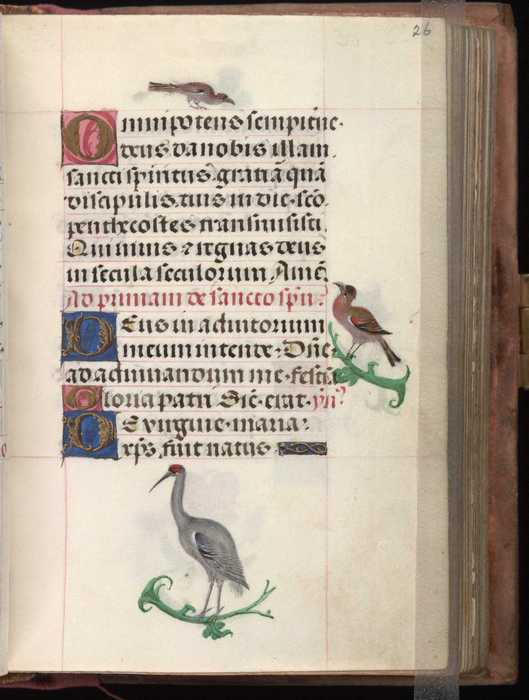 26
Omnipotens sempit̄ne·
deus da nobis illam
sancti spiritus gratiā quā
discipulis tuis in die scō
penthecostes transmisisti.
Qui vivis ⁊ regnas deus
in secula seculorum Amē
Ad primam de sancto spū:
Deus in adiutorium
meum intende· Dn̄e
ad adiuuandum me festīa
Gloria patri Sic̄ erat· yn̄?
De virgine maria
xp̄s fuit natus